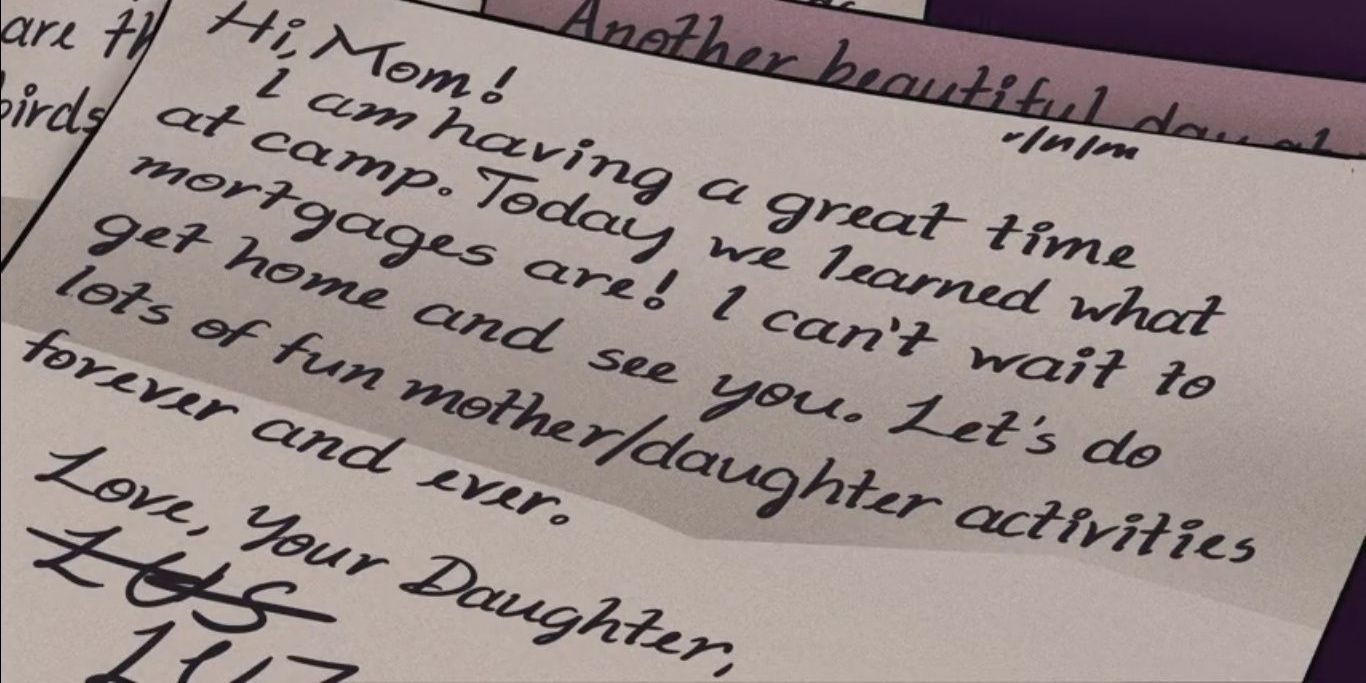 are th
birds
Another beautiful day at
Hi, Mom!
I am having a great time
at camp. Today we learned what
mortgages are! I can't wait to
get home and see you. Let's do
lots of fun mother/daughter activities
forever and ever.
Love, Your Daughter,
LUS
LUZ